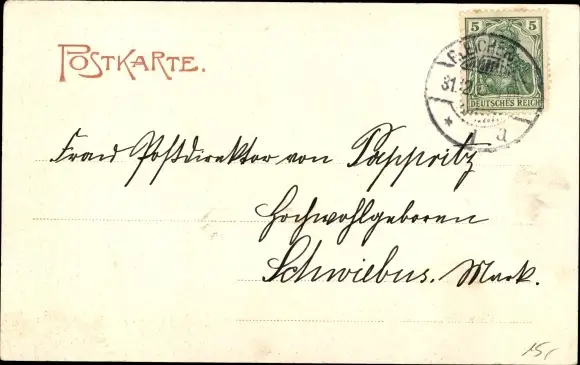 POSTKARTE.
5 5
DEUTSCHES REICH
31.12
a
Frau Postdirektor von Pappritz
Hochwohlgeboren
Schwiebus. Mark.
15,